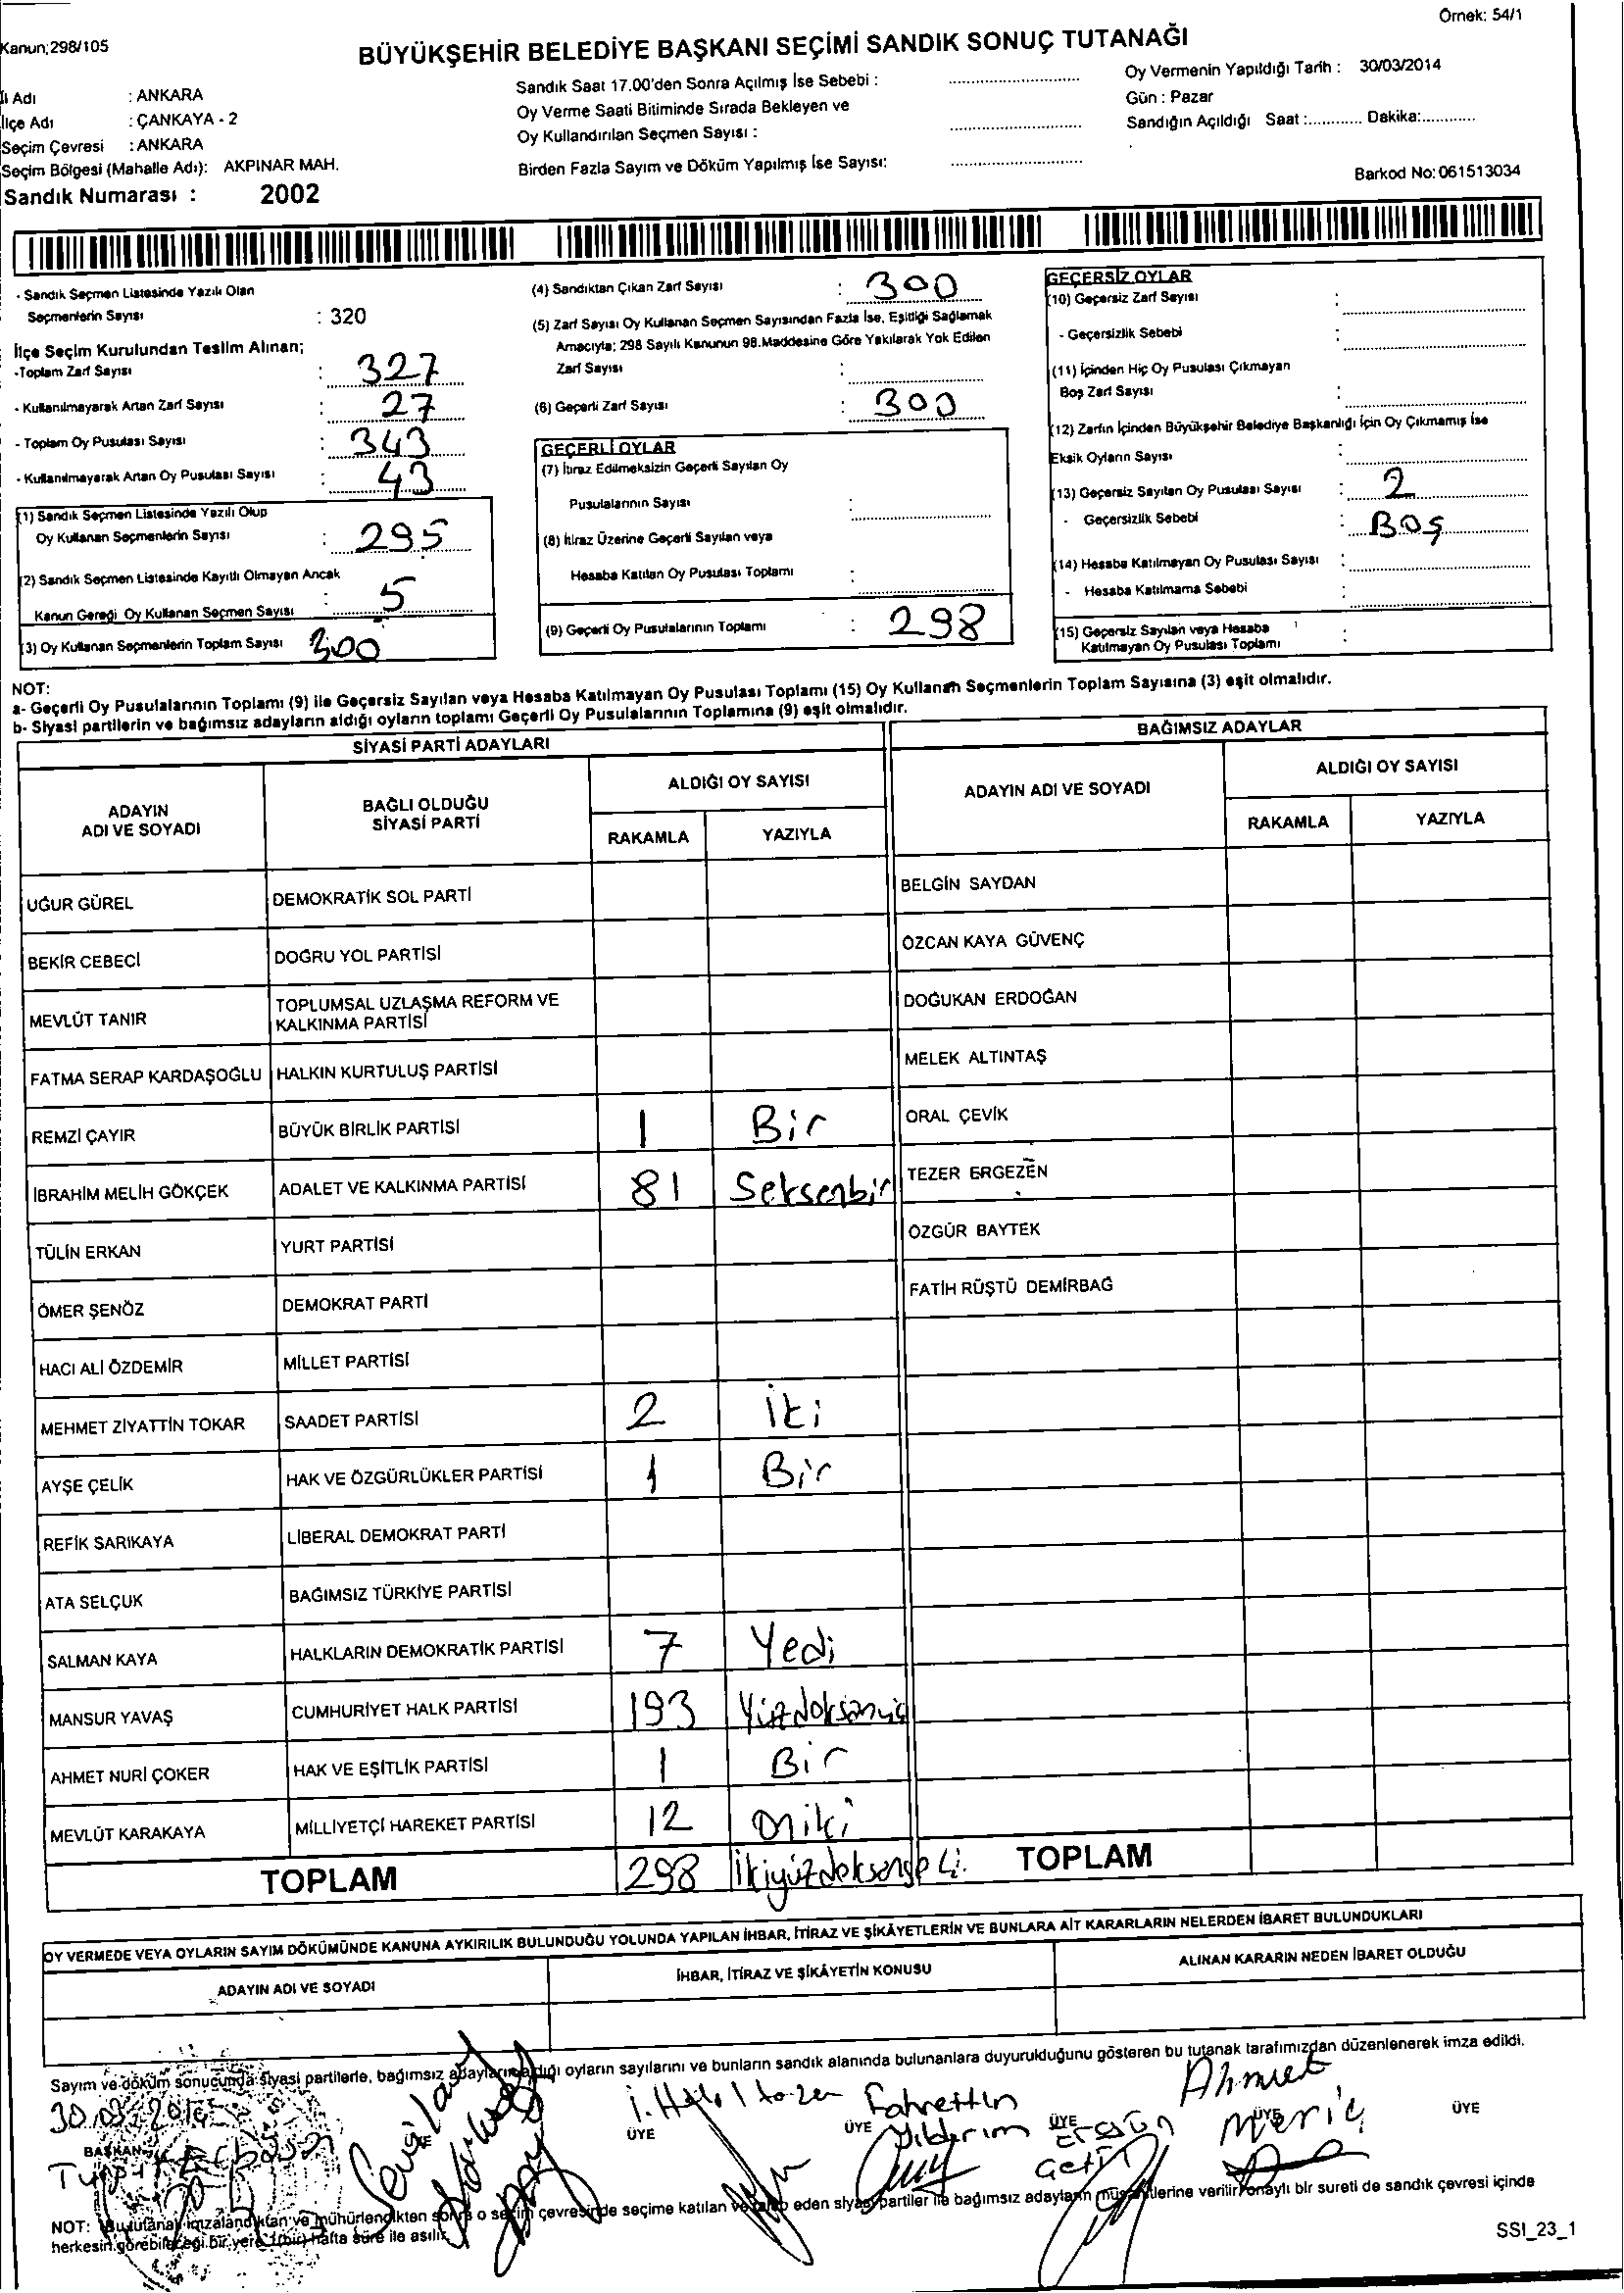 Örnek: 54/1
Kanun;298/105
BÜYÜKŞEHİR BELEDİYE BAŞKANI SEÇİMİ SANDIK SONUÇ TUTANAĞI
İl Adı : ANKARA
İlçe Adı : ÇANKAYA - 2
Seçim Çevresi : ANKARA
Seçim Bölgesi (Mahalle Adı): AKPINAR MAH.
Sandık Numarası : 2002
Sandık Saat 17.00'den Sonra Açılmış İse Sebebi :
Oy Verme Saati Bitiminde Sırada Bekleyen ve
Oy Kullandırılan Seçmen Sayısı :
Birden Fazla Sayım ve Döküm Yapılmış İse Sayısı:
Oy Vermenin Yapıldığı Tarih : 30/03/2014
Gün : Pazar
Sandığın Açıldığı Saat :............ Dakika:............
Barkod No: 061513034
- Sandık Seçmen Listesinde Yazılı Olan
Seçmenlerin Sayısı : 320
İlçe Seçim Kurulundan Teslim Alınan;
-Toplam Zarf Sayısı : 327
- Kullanılmayarak Artan Zarf Sayısı : 27
- Toplam Oy Pusulası Sayısı : 343
- Kullanılmayarak Artan Oy Pusulası Sayısı : 43
(1) Sandık Seçmen Listesinde Yazılı Olup
Oy Kullanan Seçmenlerin Sayısı : 295
(2) Sandık Seçmen Listesinde Kayıtlı Olmayan Ancak
Kanun Gereği Oy Kullanan Seçmen Sayısı : 5
(3) Oy Kullanan Seçmenlerin Toplam Sayısı 300
(4) Sandıktan Çıkan Zarf Sayısı : 300
(5) Zarf Sayısı Oy Kullanan Seçmen Sayısından Fazla İse, Eşitliği Sağlamak
Amacıyla; 298 Sayılı Kanunun 98.Maddesine Göre Yakılarak Yok Edilen
Zarf Sayısı :
(6) Geçerli Zarf Sayısı : 300
GEÇERLİ OYLAR
(7) İtiraz Edilmeksizin Geçerli Sayılan Oy
Pusulalarının Sayısı :
(8) İtiraz Üzerine Geçerli Sayılan veya
Hesaba Katılan Oy Pusulası Toplamı :
(9) Geçerli Oy Pusulalarının Toplamı : 298
GEÇERSİZ OYLAR
(10) Geçersiz Zarf Sayısı :
- Geçersizlik Sebebi :
(11) İçinden Hiç Oy Pusulası Çıkmayan
Boş Zarf Sayısı :
(12) Zarfın İçinden Büyükşehir Belediye Başkanlığı İçin Oy Çıkmamış İse
Eksik Oyların Sayısı :
(13) Geçersiz Sayılan Oy Pusulası Sayısı : 2
- Geçersizlik Sebebi : Boş
(14) Hesaba Katılmayan Oy Pusulası Sayısı :
- Hesaba Katılmama Sebebi :
(15) Geçersiz Sayılan veya Hesaba
Katılmayan Oy Pusulası Toplamı :
NOT:
a- Geçerli Oy Pusulalarının Toplamı (9) ile Geçersiz Sayılan veya Hesaba Katılmayan Oy Pusulası Toplamı (15) Oy Kullanan Seçmenlerin Toplam Sayısına (3) eşit olmalıdır.
b- Siyasi partilerin ve bağımsız adayların aldığı oyların toplamı Geçerli Oy Pusulalarının Toplamına (9) eşit olmalıdır.
SİYASİ PARTİ ADAYLARI
ADAYIN ADI VE SOYADI
BAĞLI OLDUĞU SİYASİ PARTİ
ALDIĞI OY SAYISI
RAKAMLA YAZIYLA
UĞUR GÜREL DEMOKRATİK SOL PARTİ
BEKİR CEBECİ DOĞRU YOL PARTİSİ
MEVLÜT TANIR TOPLUMSAL UZLAŞMA REFORM VE
KALKINMA PARTİSİ
FATMA SERAP KARDAŞOĞLU HALKIN KURTULUŞ PARTİSİ
REMZİ ÇAYIR BÜYÜK BİRLİK PARTİSİ 1 Bir
İBRAHİM MELİH GÖKÇEK ADALET VE KALKINMA PARTİSİ 81 Seksenbir
TÜLİN ERKAN YURT PARTİSİ
ÖMER ŞENÖZ DEMOKRAT PARTİ
HACI ALİ ÖZDEMİR MİLLET PARTİSİ
MEHMET ZİYATTİN TOKAR SAADET PARTİSİ 2 İki
AYŞE ÇELİK HAK VE ÖZGÜRLÜKLER PARTİSİ 1 Bir
REFİK SARIKAYA LİBERAL DEMOKRAT PARTİ
ATA SELÇUK BAĞIMSIZ TÜRKİYE PARTİSİ
SALMAN KAYA HALKLARIN DEMOKRATİK PARTİSİ 7 Yedi
MANSUR YAVAŞ CUMHURİYET HALK PARTİSİ 193 Yüzdoksanüç
AHMET NURİ ÇOKER HAK VE EŞİTLİK PARTİSİ 1 Bir
MEVLÜT KARAKAYA MİLLİYETÇİ HAREKET PARTİSİ 12 oniki
TOPLAM 298
BAĞIMSIZ ADAYLAR
ADAYIN ADI VE SOYADI
ALDIĞI OY SAYISI
RAKAMLA YAZIYLA
BELGİN SAYDAN
ÖZCAN KAYA GÜVENÇ
DOĞUKAN ERDOĞAN
MELEK ALTINTAŞ
ORAL ÇEVİK
TEZER ERGEZEN
ÖZGÜR BAYTEK
FATİH RÜŞTÜ DEMİRBAĞ
TOPLAM
OY VERMEDE VEYA OYLARIN SAYIM DÖKÜMÜNDE KANUNA AYKIRILIK BULUNDUĞU YOLUNDA YAPILAN İHBAR, İTİRAZ VE ŞİKÂYETLERİN VE BUNLARA AİT KARARLARIN NELERDEN İBARET BULUNDUKLARI
ADAYIN ADI VE SOYADI İHBAR, İTİRAZ VE ŞİKÂYETİN KONUSU ALINAN KARARIN NEDEN İBARET OLDUĞU
Sayım ve döküm sonucunda siyasi partilerle, bağımsız adayların aldığı oyların sayılarını ve bunların sandık alanında bulunanlara duyurulduğunu gösteren bu tutanak tarafımızdan düzenlenerek imza edildi.
30.03.2014
BAŞKAN
ÜYE
ÜYE Fahrettin Yıldırım
ÜYE
ÜYE Ahmet Meriç
ÜYE
NOT: Bu tutanak imzalandıktan ve mühürlendikten sonra o seçim çevresinde seçime katılan ve talep eden siyasi partiler ile bağımsız adayların müşahitlerine verilir, onaylı bir sureti de sandık çevresi içinde
herkesin görebileceği bir yere 1 (bir) hafta süre ile asılır.
SSI_23_1